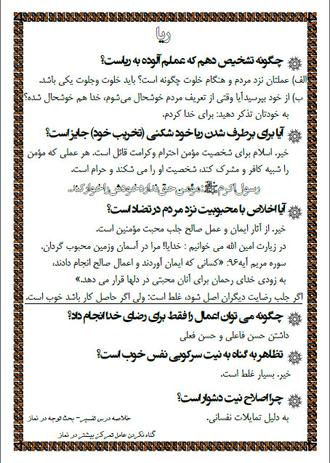 ریا
چگونه تشخیص دهم که عملم آلوده به ریاست؟
الف) عملتان نزد مردم و هنگام خلوت چگونه است؟ باید خلوت وجلوت یکی باشد.
ب) از خود بپرسید آیا وقتی از تعریف مردم خوشحال می‌شوم، خدا هم خوشحال شده؟
به خودتان تذکر دهید: برای خدا کردم.
آیا برای برطرف شدن ریا خود شکنی (تخریب خود) جایز است؟
خیر. اسلام برای شخصیت مؤمن احترام وکرامت قائل است. هر عملی که مؤمن
را شبیه کافر و مشرک کند، شخصیت او را می شکند و حرام است.
رسول اکرم ﷺ: مؤمن حق ندارد خودش را خوار کند.
آیا اخلاص با محبوبیت نزد مردم در تضاد است؟
خیر. از آثار ایمان و عمل صالح جلب محبت مؤمنین است.
در زیارت امین الله می خوانیم : خدایا! مرا در آسمان وزمین محبوب گردان.
سوره مریم آیه۹۶: «کسانی که ایمان آوردند و اعمال صالح انجام دادند،
به زودی خدای رحمان برای آنان محبتی در دلها قرار می دهد.»
اگر جلب رضایت دیگران اصل شود، غلط است: ولی اگر حاصل کار باشد خوب است.
چگونه می توان اعمال را فقط برای رضای خدا انجام داد؟
داشتن حسن فاعلی و حسن فعلی
تظاهر به گناه به نیت سرکوبی نفس خوب است؟
خیر. بسیار غلط است.
چرا اصلاح نیت دشوار است؟
به دلیل تمایلات نفسانی.
خلاصه درس تفسیر – بحث توجه در نماز
گناه نکردن عامل تمرکز بیشتر در نماز